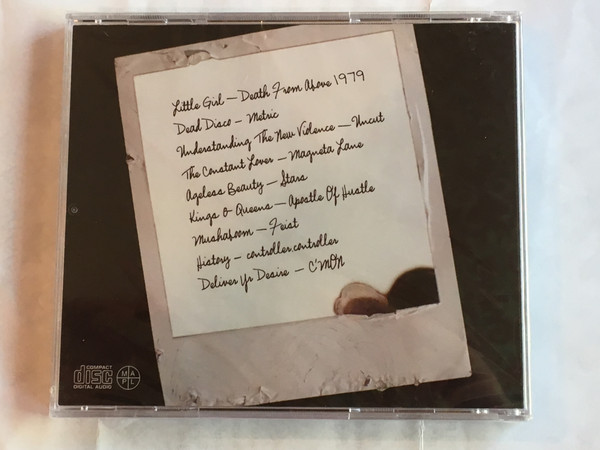 Little Girl — Death From Above 1979
Dead Disco — Metric
Understanding The New Violence — Uncut
The Constant Lover — Magneta Lane
Ageless Beauty — Stars
Kings & Queens — Apostle Of Hustle
Mushaboom — Feist
History — controller.controller
Deliver Yr Desire — C'MON
COMPACT
disc
DIGITAL AUDIO
M A
P L